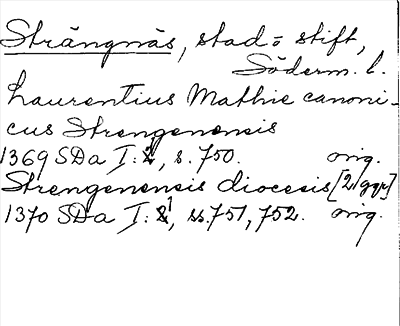 Strängnäs, stad o stift,
Söderm. l.
Laurentius Mathie canoni-
cus Strengenensis
1369 SDa I:1, s. 750. orig.
Strengenensis diocesis [2 ggr]
1370 SDa I:1, ss. 751, 752. orig.